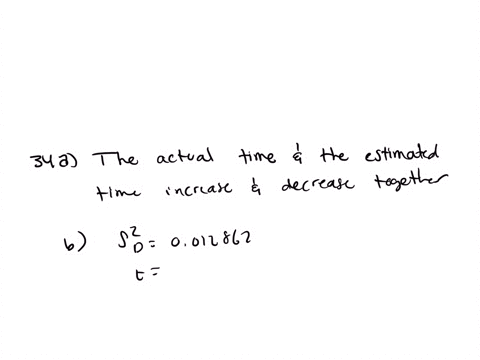 34a) The actual time & the estimated
time increase & decrease together
b) S²_D = 0.012862
t =